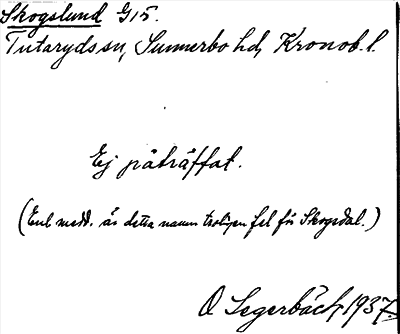 Skogslund G15.
Tutaryds sn, Sunnerbo hd, Kronob. l.
Ej påträffat.
(Enl. medd. är detta namn troligen fel för Skogsdal.)
O Segerbäck, 1937.